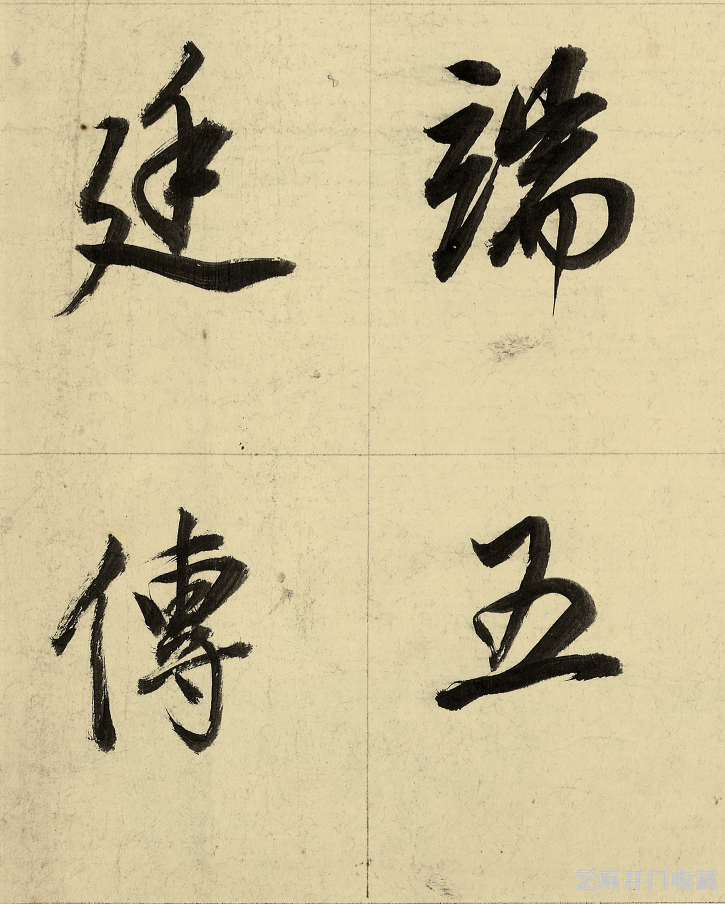 端五
廷傳
芝麻开门收藏